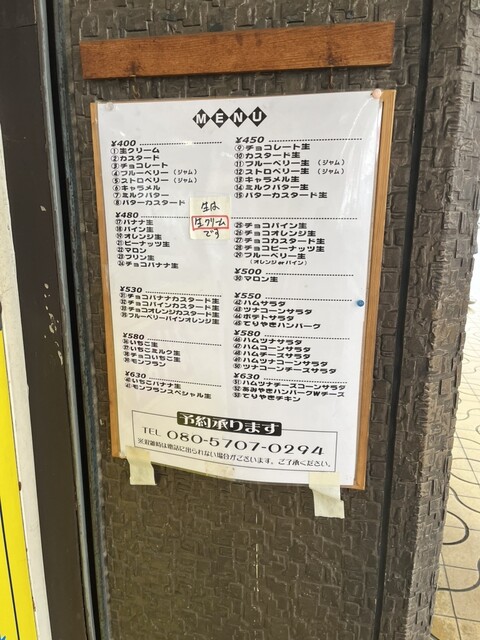 MENU
¥400
①生クリーム
②カスタード
③チョコレート
④ブルーベリー（ジャム）
⑤ストロベリー（ジャム）
⑥キャラメル
⑦ミルクバター
⑧バターカスタード
¥450
⑨チョコレート生
⑩カスタード生
⑪ブルーベリー生（ジャム）
⑫ストロベリー生（ジャム）
⑬キャラメル生
⑭ミルクバター生
⑮バターカスタード生
生は
生クリーム
です
¥480
⑰バナナ生
⑱パイン生
⑲オレンジ生
㉑ピーナッツ生
㉒マロン
㉓プリン生
㉔チョコバナナ生
㉕チョコパイン生
㉖チョコオレンジ生
㉗チョコカスタード生
㉘チョコピーナッツ生
㉙ブルーベリー生
（オレンジorパイン）
¥500
㉚マロン生
¥530
㉛チョコバナナカスタード生
㉜チョコパインカスタード生
㉝チョコオレンジカスタード生
㉟ブルーベリーパインオレンジ生
¥550
㊷ハムサラダ
㊸ツナコーンサラダ
㊹ポテトサラダ
㊺てりやきハンバーグ
¥580
㊱いちご生
㊲いちごミルク生
㊳チョコいちご生
㊴モンブラン
¥580
㊻ハムツナサラダ
㊼ハムコーンサラダ
㊽ハムチーズサラダ
㊾ハムツナコーンサラダ
㊿ツナコーンチーズサラダ
¥630
㊵いちごバナナ生
㊶モンブランスペシャル生
¥630
51ハムツナチーズコーンサラダ
52あみやきハンバーグWチーズ
53てりやきチキン
予約承ります
TEL 080-5707-0294
※混雑時は電話に出られない場合がございます。ご了承ください。